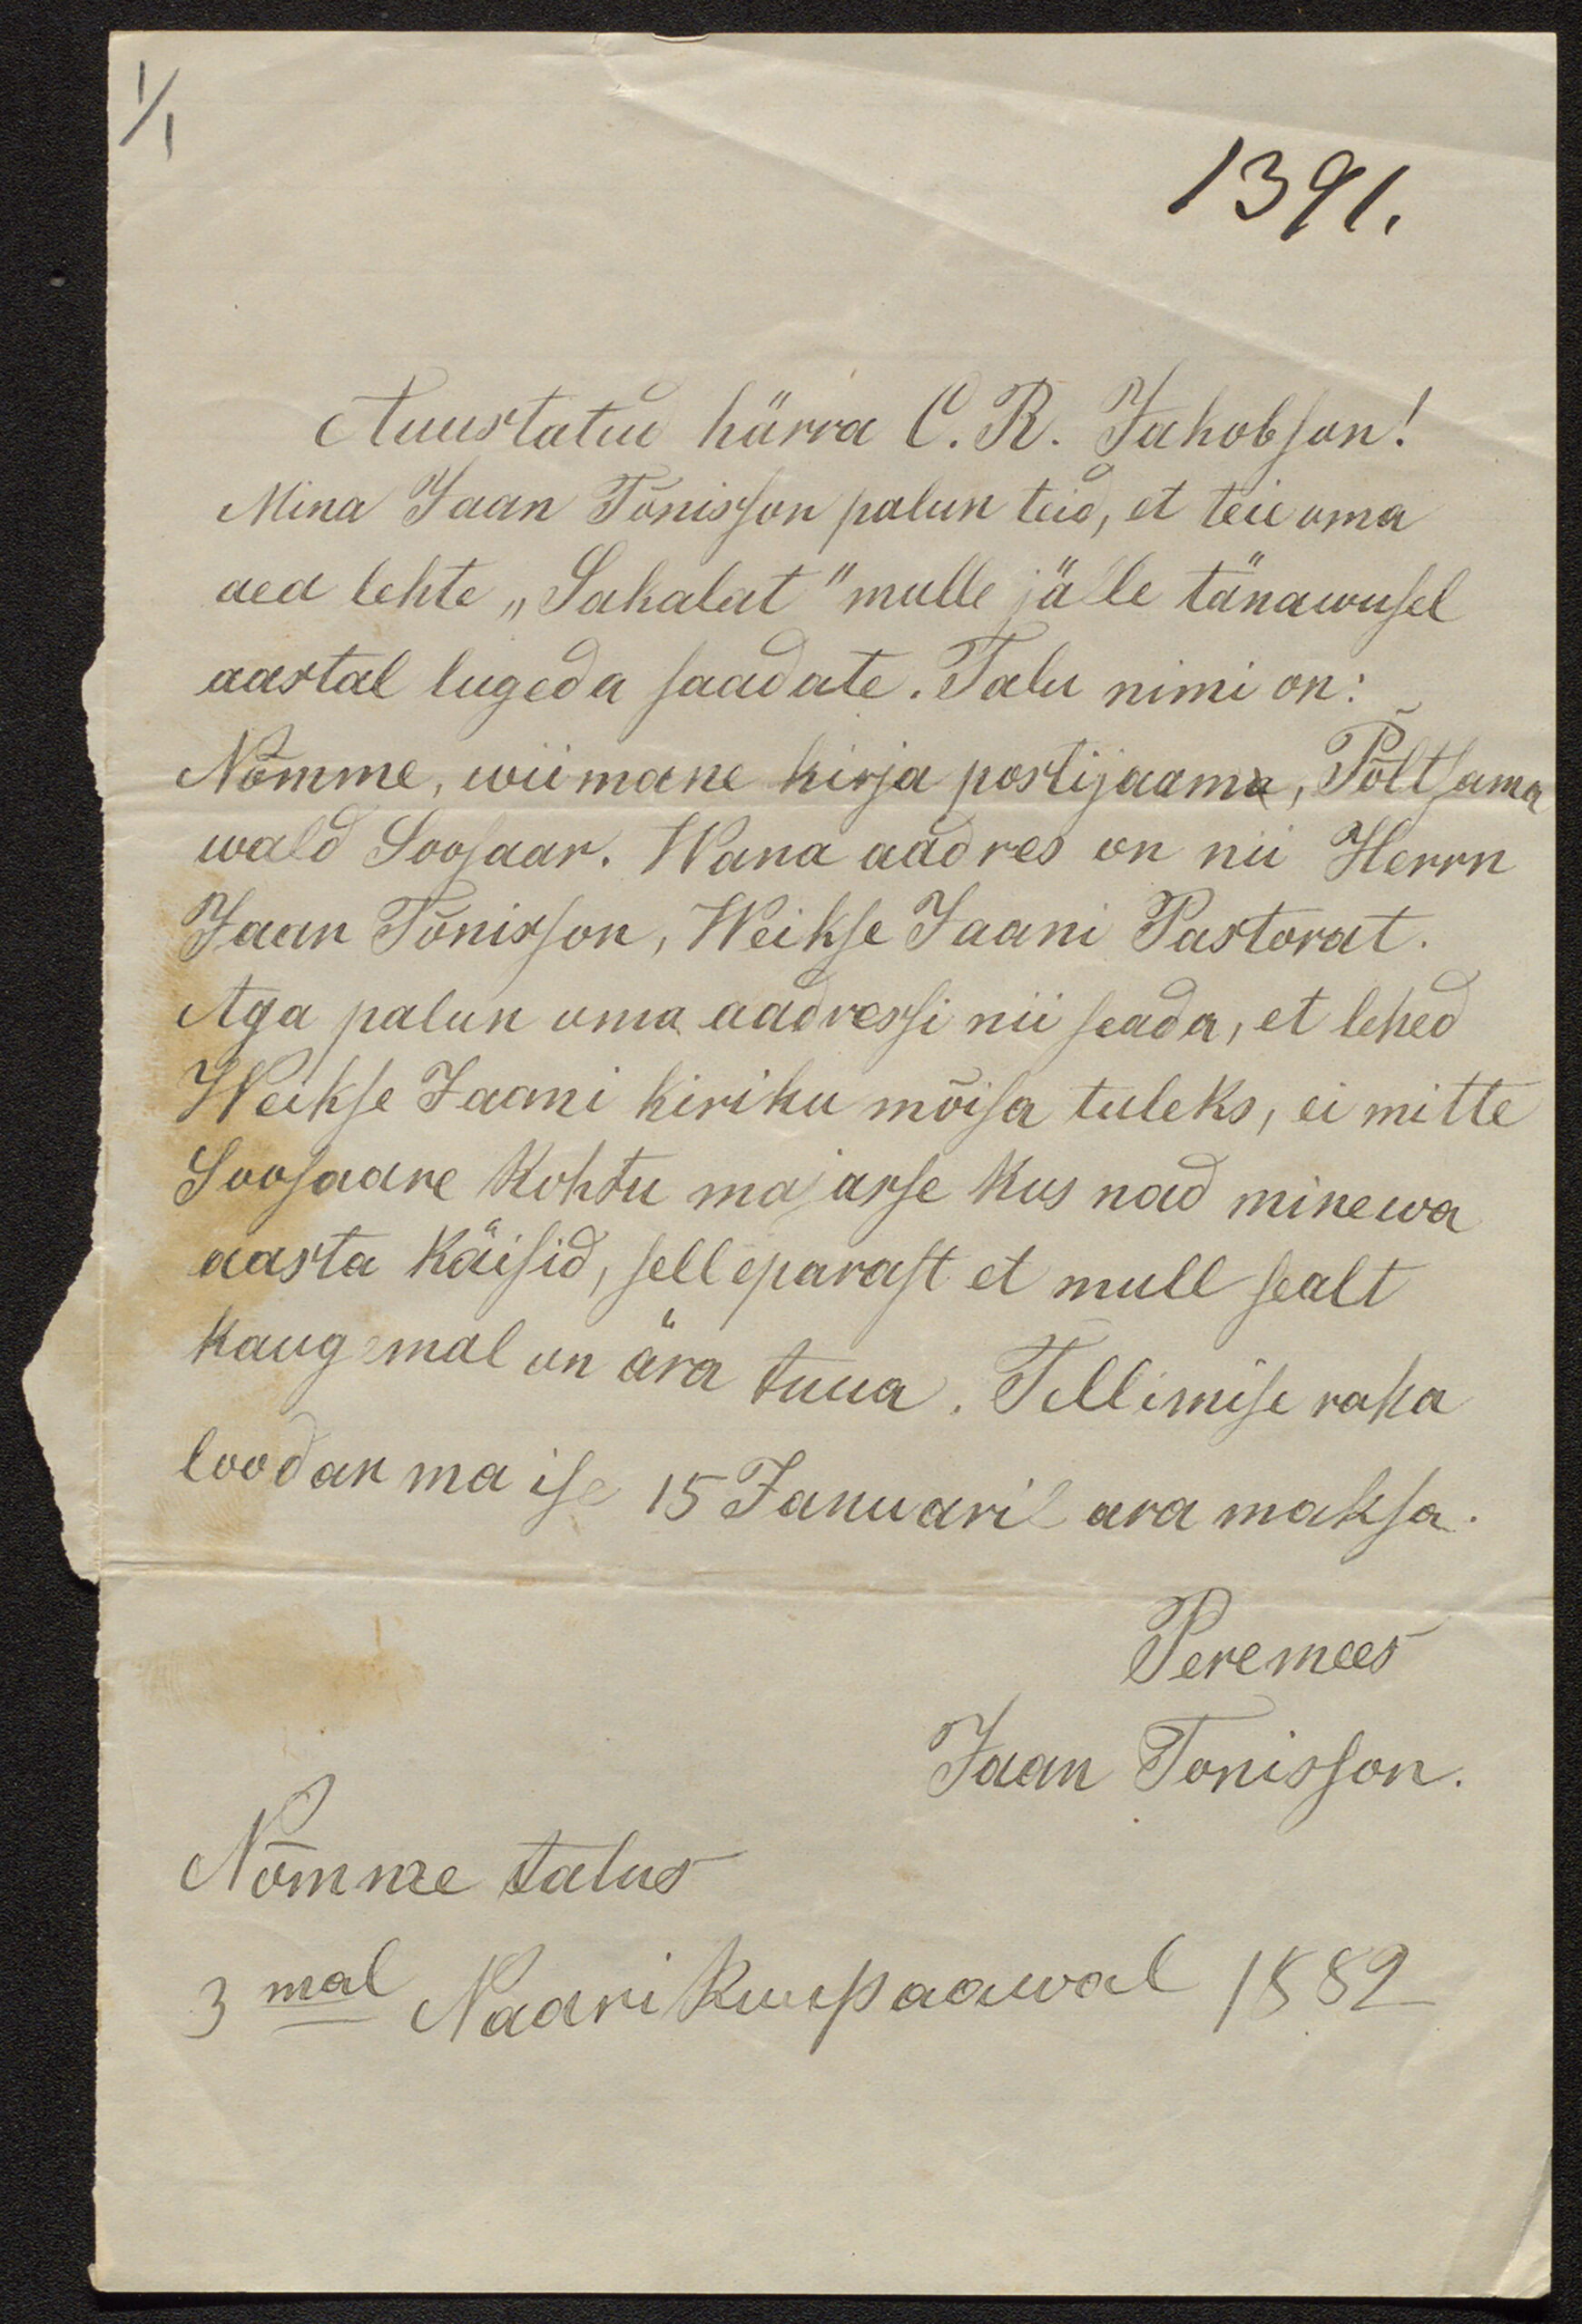 1/1
1391.
Auustatud härra C. R. Jakobson!
Mina Jaan Tõnisson palun teid, et teie oma
aea lehte „Sakalat" mulle jälle tänawusel
aastal lugeda saadate. Talu nimi on:
Nõmme, wiimane kirja postijaama, Põltsama
wald Soosaar. Wana aadres on nii Herrn
Jaan Tõnisson, Weikse Jaani Pastorat.
Aga palun oma aadressi nii seada, et lehed
Weikse Jaani kiriku mõisa tuleks, ei mitte
Soosaare kohtu majasse kus nad minewa
aasta käisid, selleparast et mull sealt
kaugemal on ära tuua. Tellimise raha
loodan ma ise 15 Januaril ara maksa.
Peremees
Jaan Tonisson.
Nõmme talus
3 mal Naarikuupaawal 1882